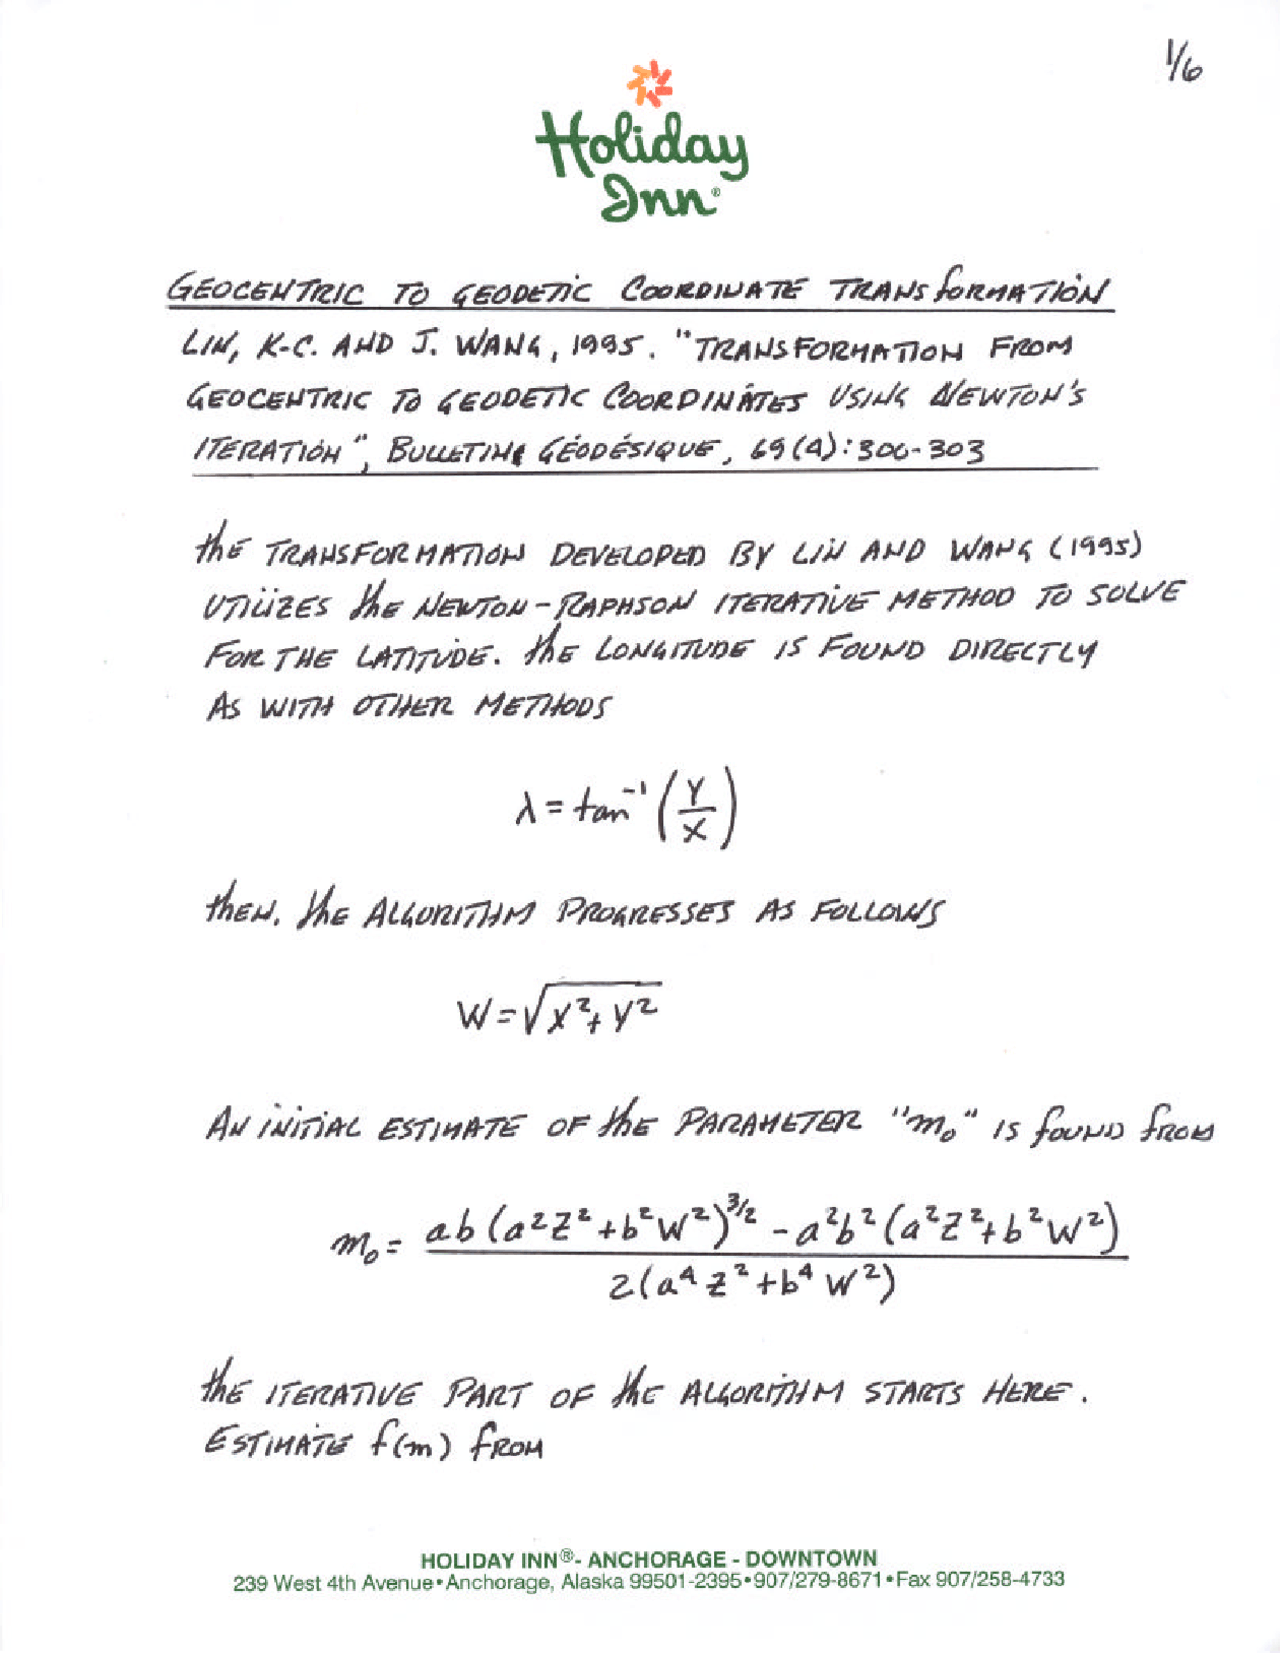 1/6
Holiday
Inn®
GEOCENTRIC TO GEODETIC COORDINATE TRANSFORMATION
LIN, K-C. AND J. WANG, 1995. "TRANSFORMATION FROM
GEOCENTRIC TO GEODETIC COORDINATES USING NEWTON'S
ITERATION", BULLETING GÉODÉSIQUE, 69(4):300-303
THE TRANSFORMATION DEVELOPED BY LIN AND WANG (1995)
UTILIZES THE NEWTON-RAPHSON ITERATIVE METHOD TO SOLVE
FOR THE LATITUDE. THE LONGITUDE IS FOUND DIRECTLY
AS WITH OTHER METHODS
λ = tan⁻¹ (Y/X)
THEN, THE ALGORITHM PROGRESSES AS FOLLOWS
W = √(X² + Y²)
AN INITIAL ESTIMATE OF THE PARAMETER "m₀" IS FOUND FROM
m₀ = (ab(a²Z² + b²W²)^(3/2) - a²b²(a²Z² + b²W²)) / (2(a⁴Z² + b⁴W²))
THE ITERATIVE PART OF THE ALGORITHM STARTS HERE.
ESTIMATE f(m) FROM
HOLIDAY INN®- ANCHORAGE - DOWNTOWN
239 West 4th Avenue•Anchorage, Alaska 99501-2395•907/279-8671•Fax 907/258-4733